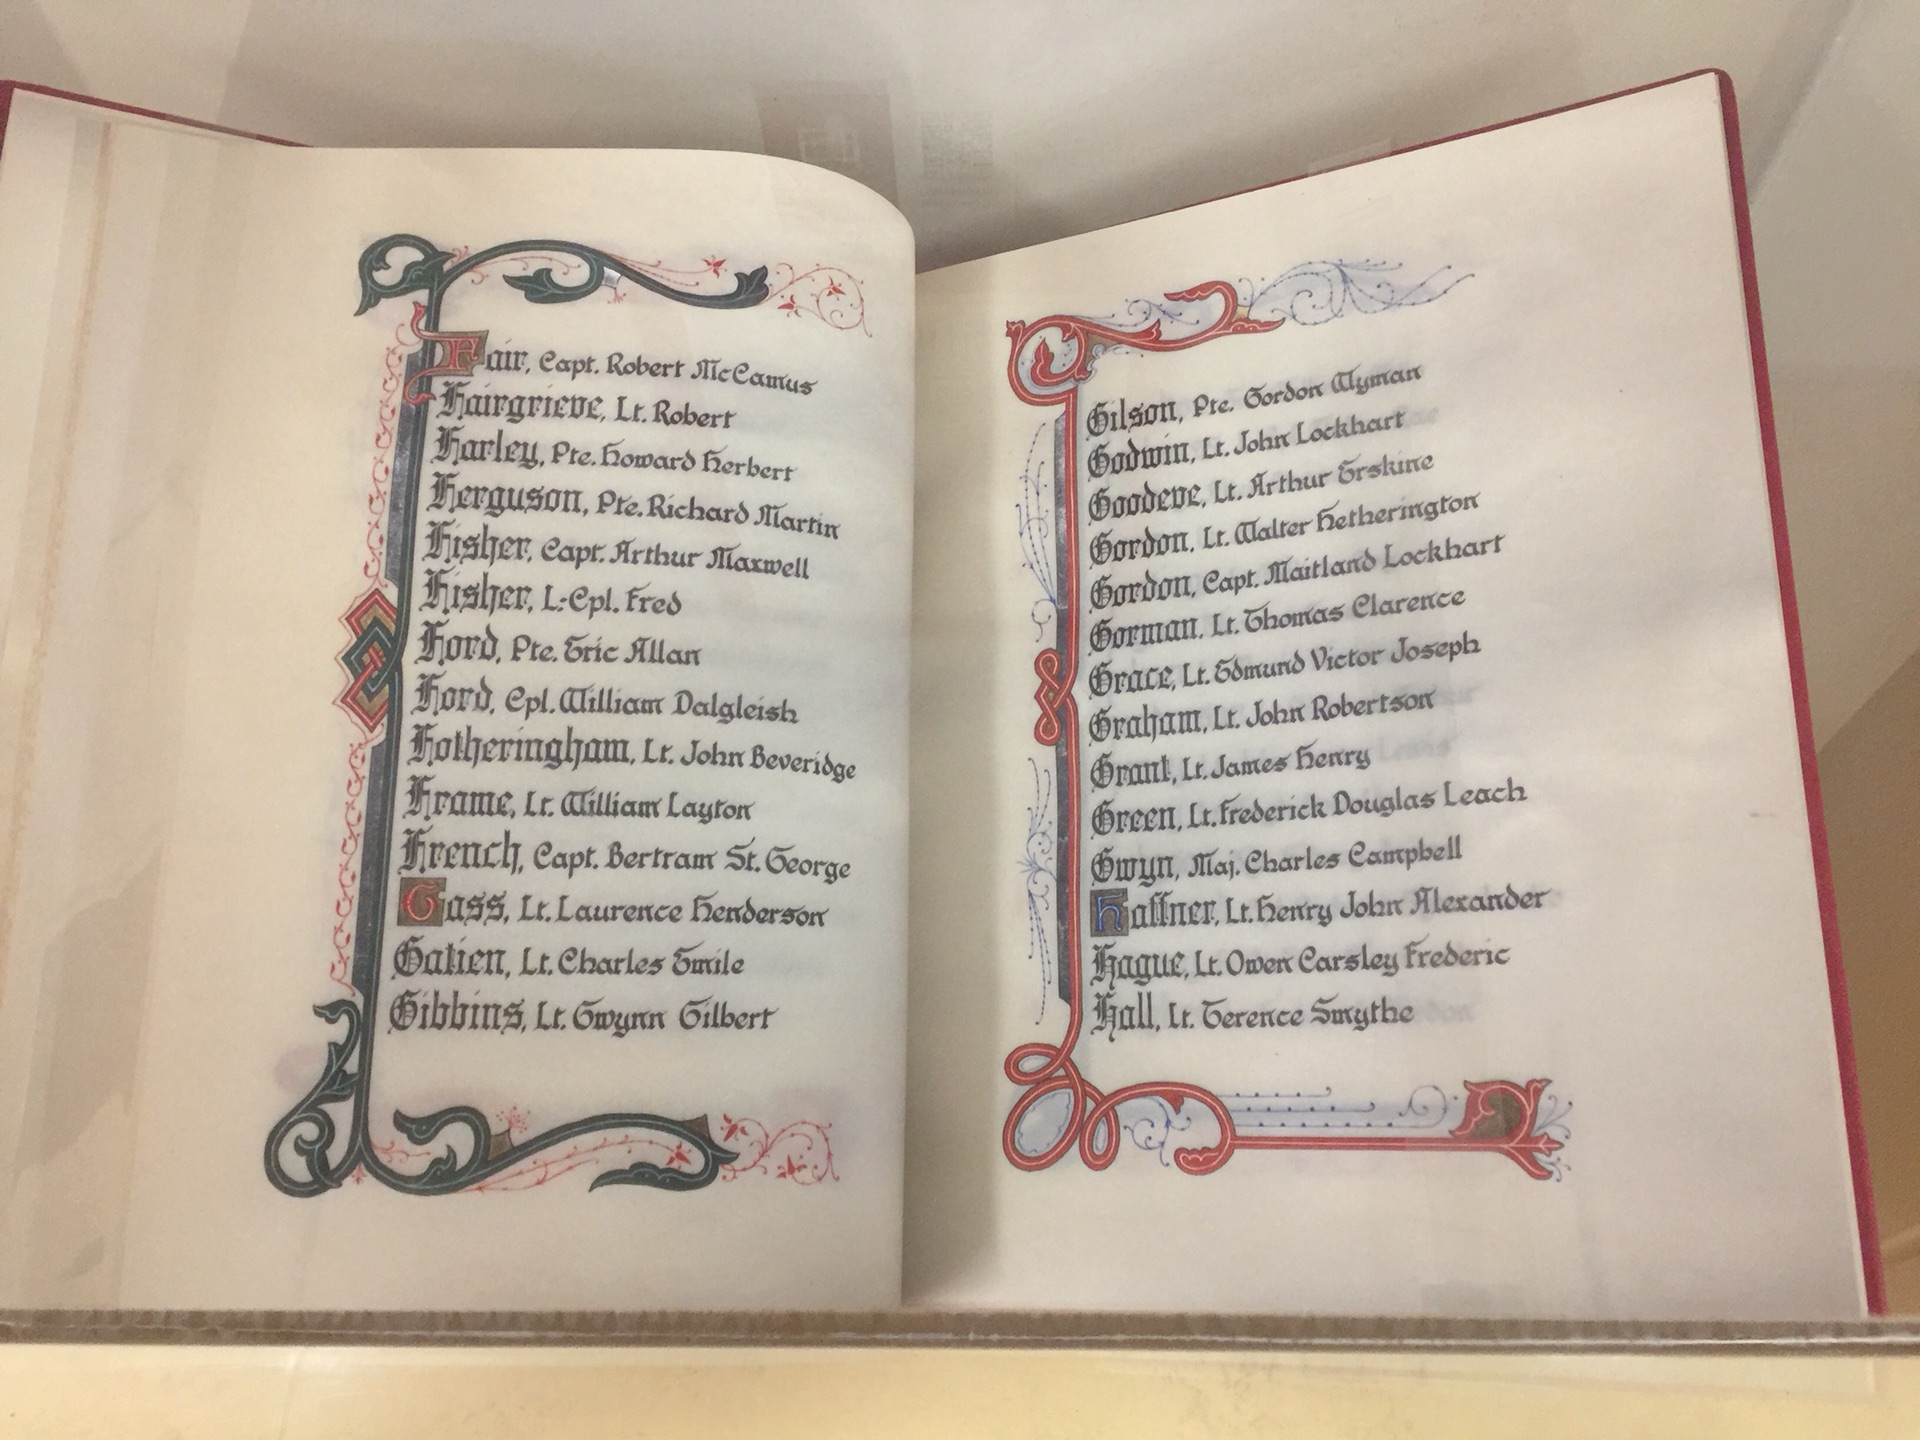 Fair, Capt. Robert McCamus
Fairgrieve, Lt. Robert
Farley, Pte. Howard Herbert
Ferguson, Pte. Richard Martin
Fisher, Capt. Arthur Maxwell
Fisher, L:Cpl. Fred
Ford, Pte. Eric Allan
Ford, Cpl. William Dalgleish
Fotheringham, Lt. John Beveridge
Frame, Lt. William Layton
French, Capt. Bertram St. George
Gass, Lt. Laurence Henderson
Gatien, Lt. Charles Emile
Gibbins, Lt. Gwynn Gilbert
Gilson, Pte. Gordon Wyman
Godwin, Lt. John Lockhart
Goodeve, Lt. Arthur Erskine
Gordon, Lt. Walter Hetherington
Gordon, Capt. Maitland Lockhart
Gorman, Lt. Thomas Clarence
Grace, Lt. Edmund Victor Joseph
Graham, Lt. John Robertson
Grant, Lt. James Henry
Green, Lt. Frederick Douglas Leach
Gwyn, Maj. Charles Campbell
Haffner, Lt. Henry John Alexander
Hague, Lt. Owen Carsley Frederic
Hall, Lt. Terence Smythe